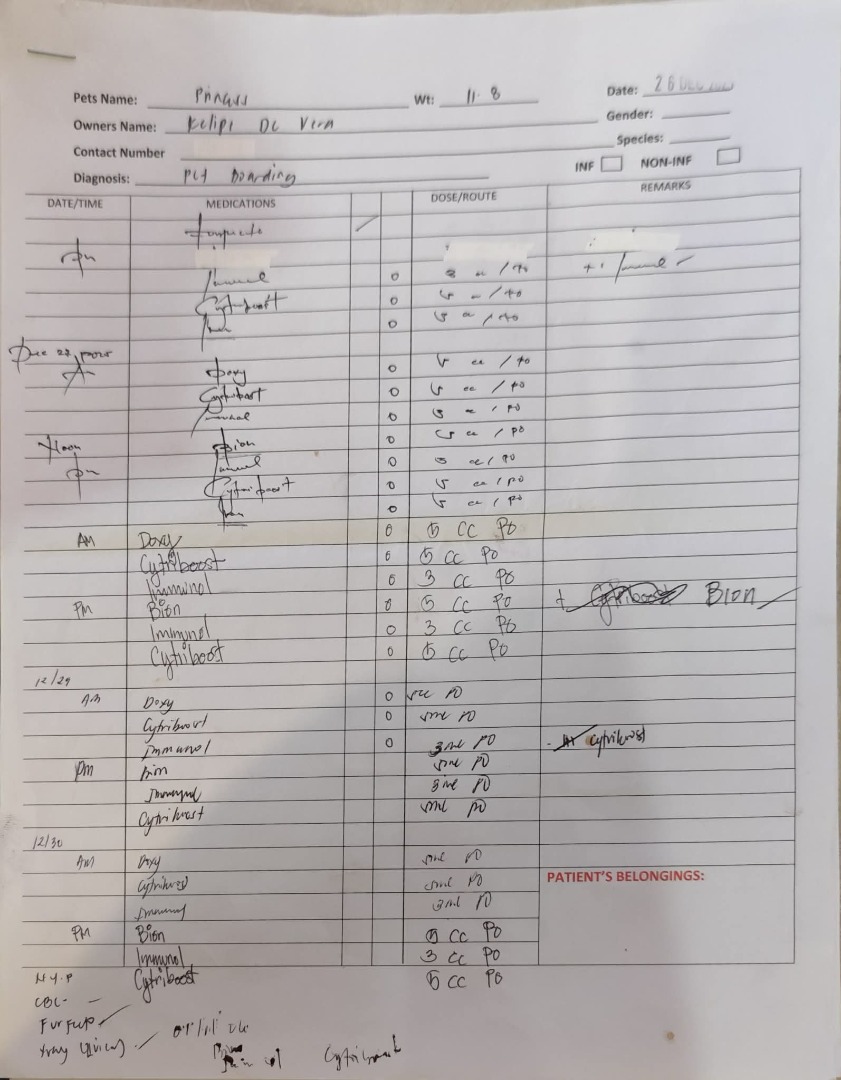 Pets Name: Wt: 11.8 Date: 26 DEC
Owners Name: Kelipi De Vera Gender:
Contact Number Species:
Diagnosis: Pet boarding INF NON-INF
DATE/TIME MEDICATIONS DOSE/ROUTE REMARKS
pm
Immunol 0 3 cc / PO + Immunol
Cytriboost 0 5 cc / PO
0 5 cc / PO
Dec 27
A Doxy 0 5 cc / PO
Cytriboost 0 5 cc / PO
Immunol 0 3 cc / PO
Noon Bion 0 5 cc / PO
pm Immunol 0 3 cc / PO
Cytriboost 0 5 cc / PO
0 5 cc / PO
AM Doxy 0 5 CC PO
Cytriboost 0 5 CC PO
Immunol 0 3 CC PO
PM Bion 0 5 CC PO + Cytriboost Bion
Immunol 0 3 CC PO
Cytriboost 0 5 CC PO
12/29
AM Doxy 0 5cc PO
Cytriboost 0 5ml PO
Immunol 0 3ml PO Cytriboost
PM Bion 5ml PO
Immunol 3ml PO
Cytriboost 5ml PO
12/30
AM Doxy 5ml PO
Cytriboost 5ml PO
Immunol 3ml PO
PATIENT'S BELONGINGS:
PM Bion 5 CC PO
Immunol 3 CC PO
Cytriboost 5 CC PO
CBC -
Xray
Cytriboost